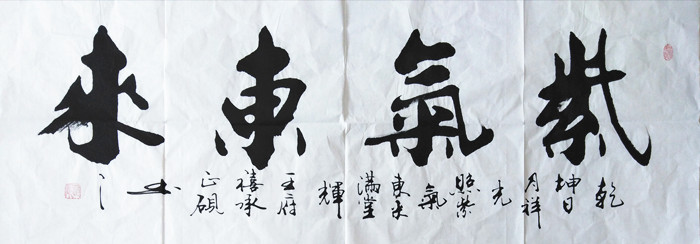 紫氣東來
乾坤日月祥光照紫氣東來滿堂輝王府禧承正硯